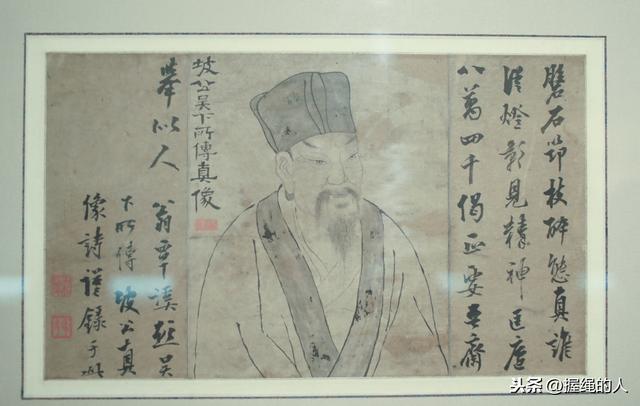 磐石笻枝醉態真誰
從燈影見精神匡廬
八萬四千偈正要吾齋
坡公吳下所傳真像
舉似人 翁覃溪題吳
下所傳坡公真
像詩謹錄于此
头条 @握绳的人